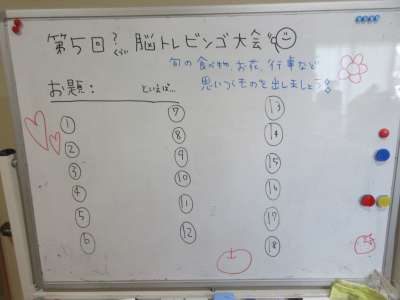 第5回?くらい 脳トレビンゴ大会
旬の食べ物、お花、行事など
思いつくものを出しましょう
お題: といえば…
① ⑦ ⑬
② ⑧ ⑭
③ ⑨ ⑮
④ ⑩ ⑯
⑤ ⑪ ⑰
⑥ ⑫ ⑱